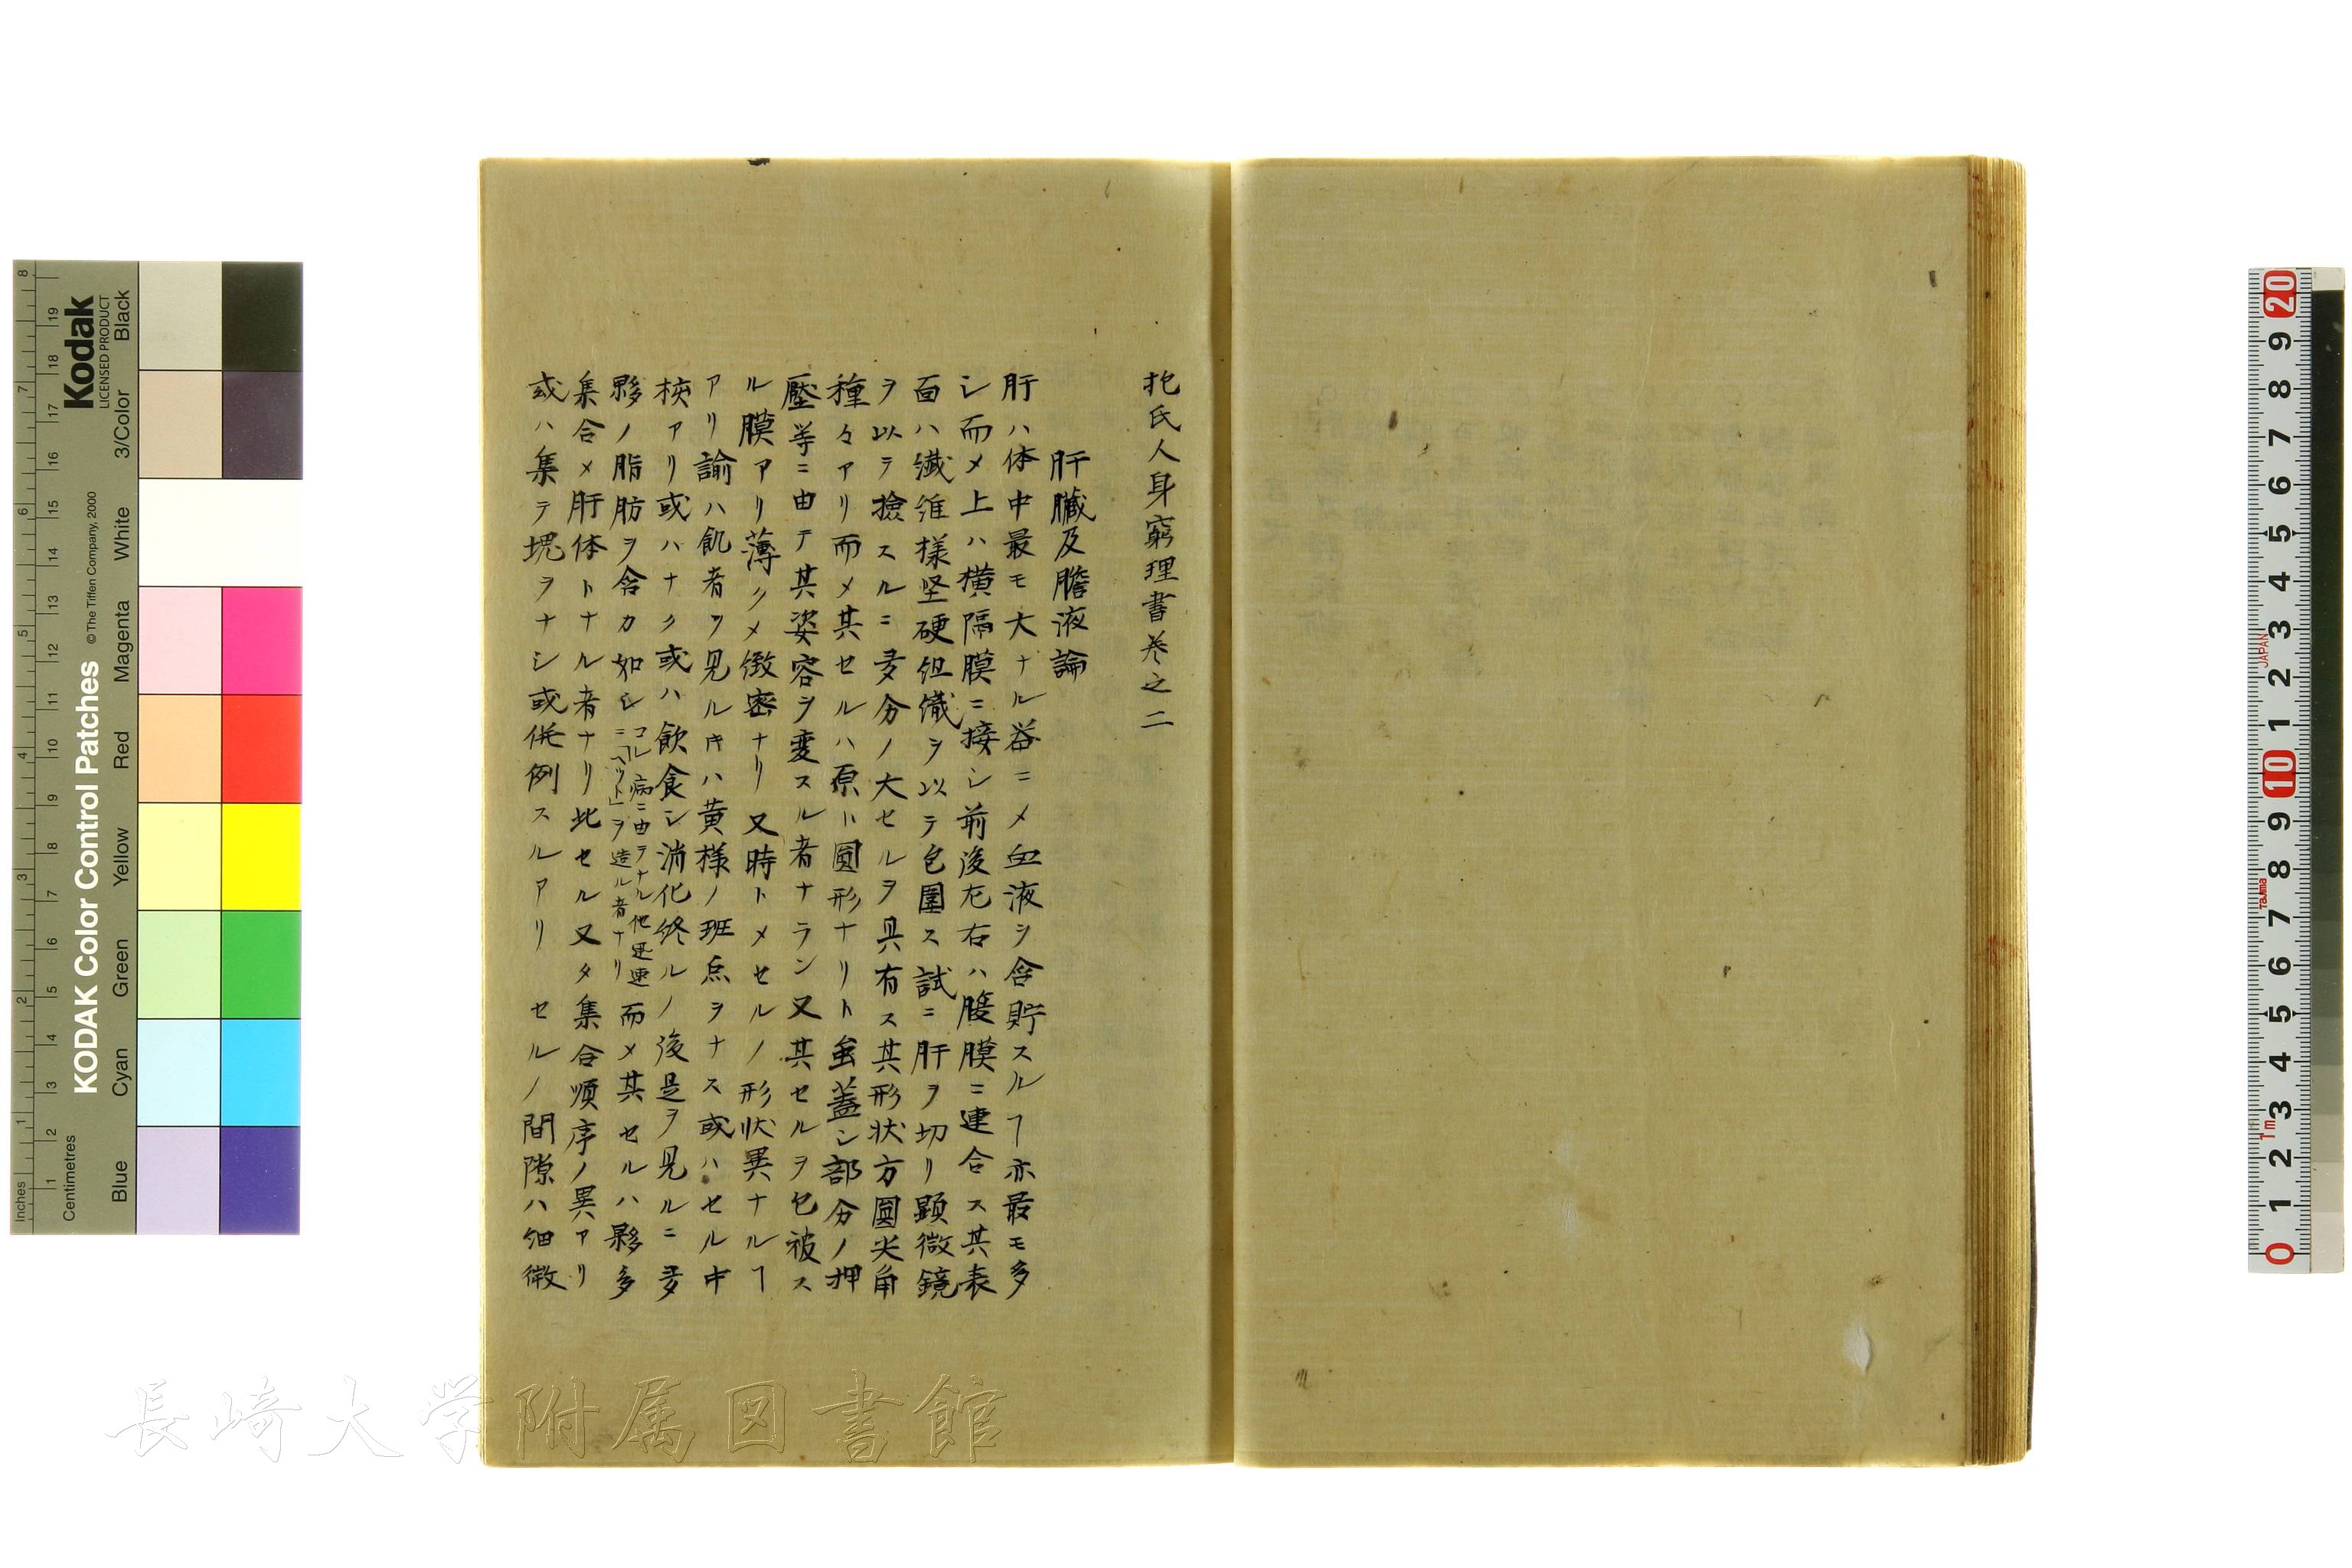 抱氏人身窮理書巻之二
肝臓及膽液論
肝ハ体中最モ大ナル器ニメ血液シ含貯スルヿ亦最モ多
シ而メ上ハ横隔膜ニ接シ前後左右ハ腹膜ニ連合ス其表
面ハ纎維様坚硬组織ヲ以テ包圍ス試ニ肝ヲ切リ顕微鏡
ヲ以テ撿スルニ夛分ノ大セルヲ具有ス其形状方圓尖角
種々アリ而メ其セルハ原ト圓形ナリト虽蓋シ部分ノ押
壓等ニ由テ其姿容ヲ変スル者ナラン又其セルヲ包被ス
ル膜アリ薄クメ緻密ナリ又時トメセルノ形状異ナルヿ
アリ諭ハ飢者ヲ見ルキハ黄様ノ班点ヲナス或ハセル中
核アリ或ハナク或ハ飲食シ消化終ルノ後是ヲ見ルニ夛
夥ノ脂肪ヲ含カ如シ
コレ病ニ由テナル他迅速
ニ「ヘット」ヲ造ル者ナリ
而メ其セルハ夥多
集合メ肝体トナル者ナリ此セル又タ集合順序ノ異アリ
或ハ集テ塊ヲナシ或併例スルアリ セルノ間隙ハ细微
長崎大学附属図書館
Kodak
LICENSED PRODUCT
KODAK Color Control Patches
© The Tiffen Company, 2000
Inches
Centimetres
Blue
Cyan
Green
Yellow
Red
Magenta
White
3/Color
Black
1 2 3 4 5 6 7 8
1 2 3 4 5 6 7 8 9 10 11 12 13 14 15 16 17 18 19
JAPAN
Tajima
1m
0 1 2 3 4 5 6 7 8 9 10 1 2 3 4 5 6 7 8 9 20